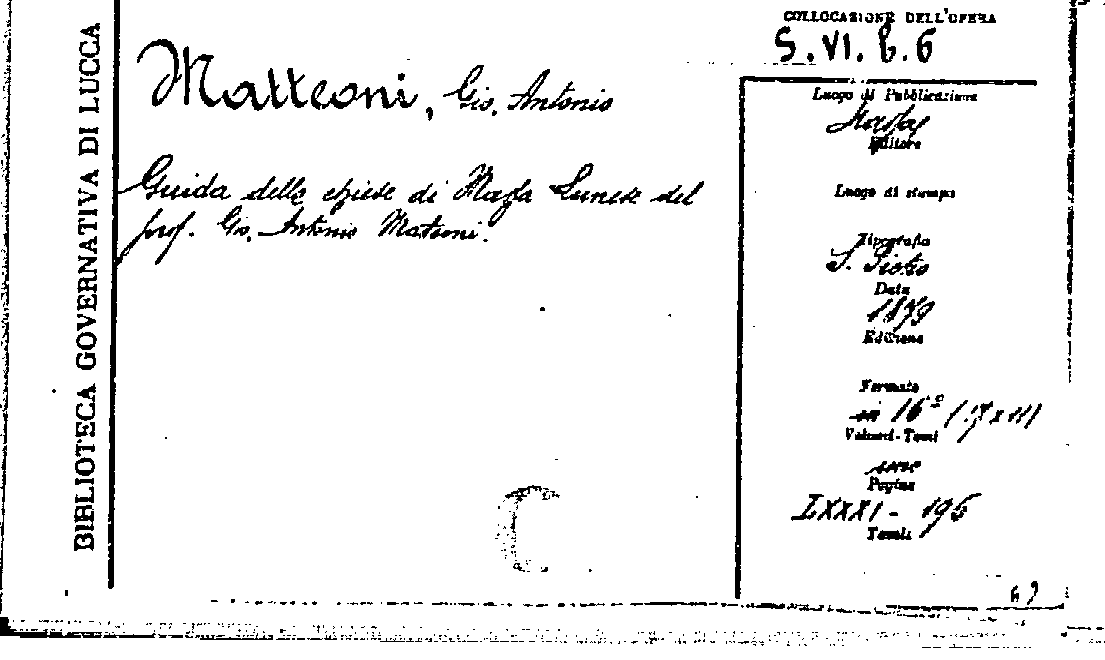 BIBLIOTECA GOVERNATIVA DI LUCCA
COLLOCAZIONE DELL'OPERA
S. VI. B. 6
Matteoni, Gio. Antonio
Guida delle chiese di Massa Lunese del
prof. Gio. Antonio Matteoni.
Luogo di Pubblicazione
Massa
Editore
Luogo di stampa
Tipografia
S. Pietro
Data
1879
Edizione
Formato
in 16º (17x11)
Volumi-Tomi
uno
Pagine
LXXXI - 196
Tavole
C